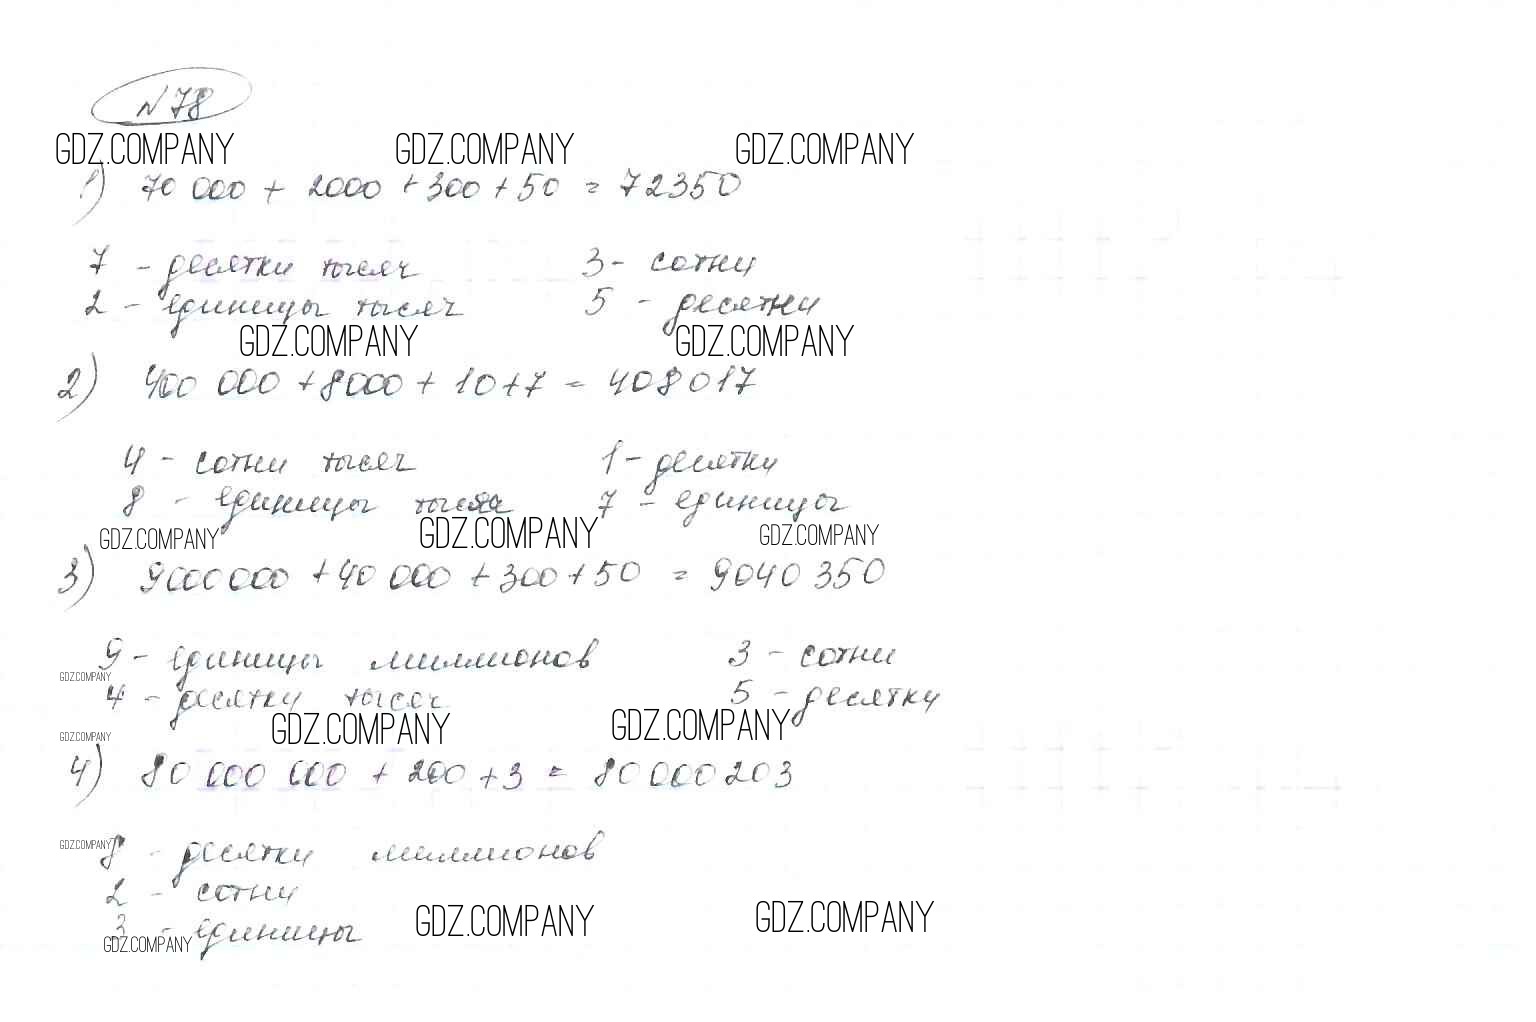 №78
GDZ.COMPANY GDZ.COMPANY GDZ.COMPANY
1) 70 000 + 2000 + 300 + 50 = 72350
7 - десятки тысяч 3 - сотни
2 - единицы тысяч 5 - десятки
GDZ.COMPANY GDZ.COMPANY
2) 400 000 + 8000 + 10 + 7 = 408017
4 - сотни тысяч 1 - десятки
8 - единицы тысяч 7 - единицы
GDZ.COMPANY GDZ.COMPANY GDZ.COMPANY
3) 9000000 + 40 000 + 300 + 50 = 9040 350
9 - единицы миллионов 3 - сотни
GDZ.COMPANY
4 - десятки тысяч 5 - десятки
GDZ.COMPANY GDZ.COMPANY
GDZ.COMPANY
4) 80 000 000 + 200 + 3 = 80 000 203
GDZ.COMPANY
8 - десятки миллионов
2 - сотни
3 - единицы
GDZ.COMPANY GDZ.COMPANY GDZ.COMPANY